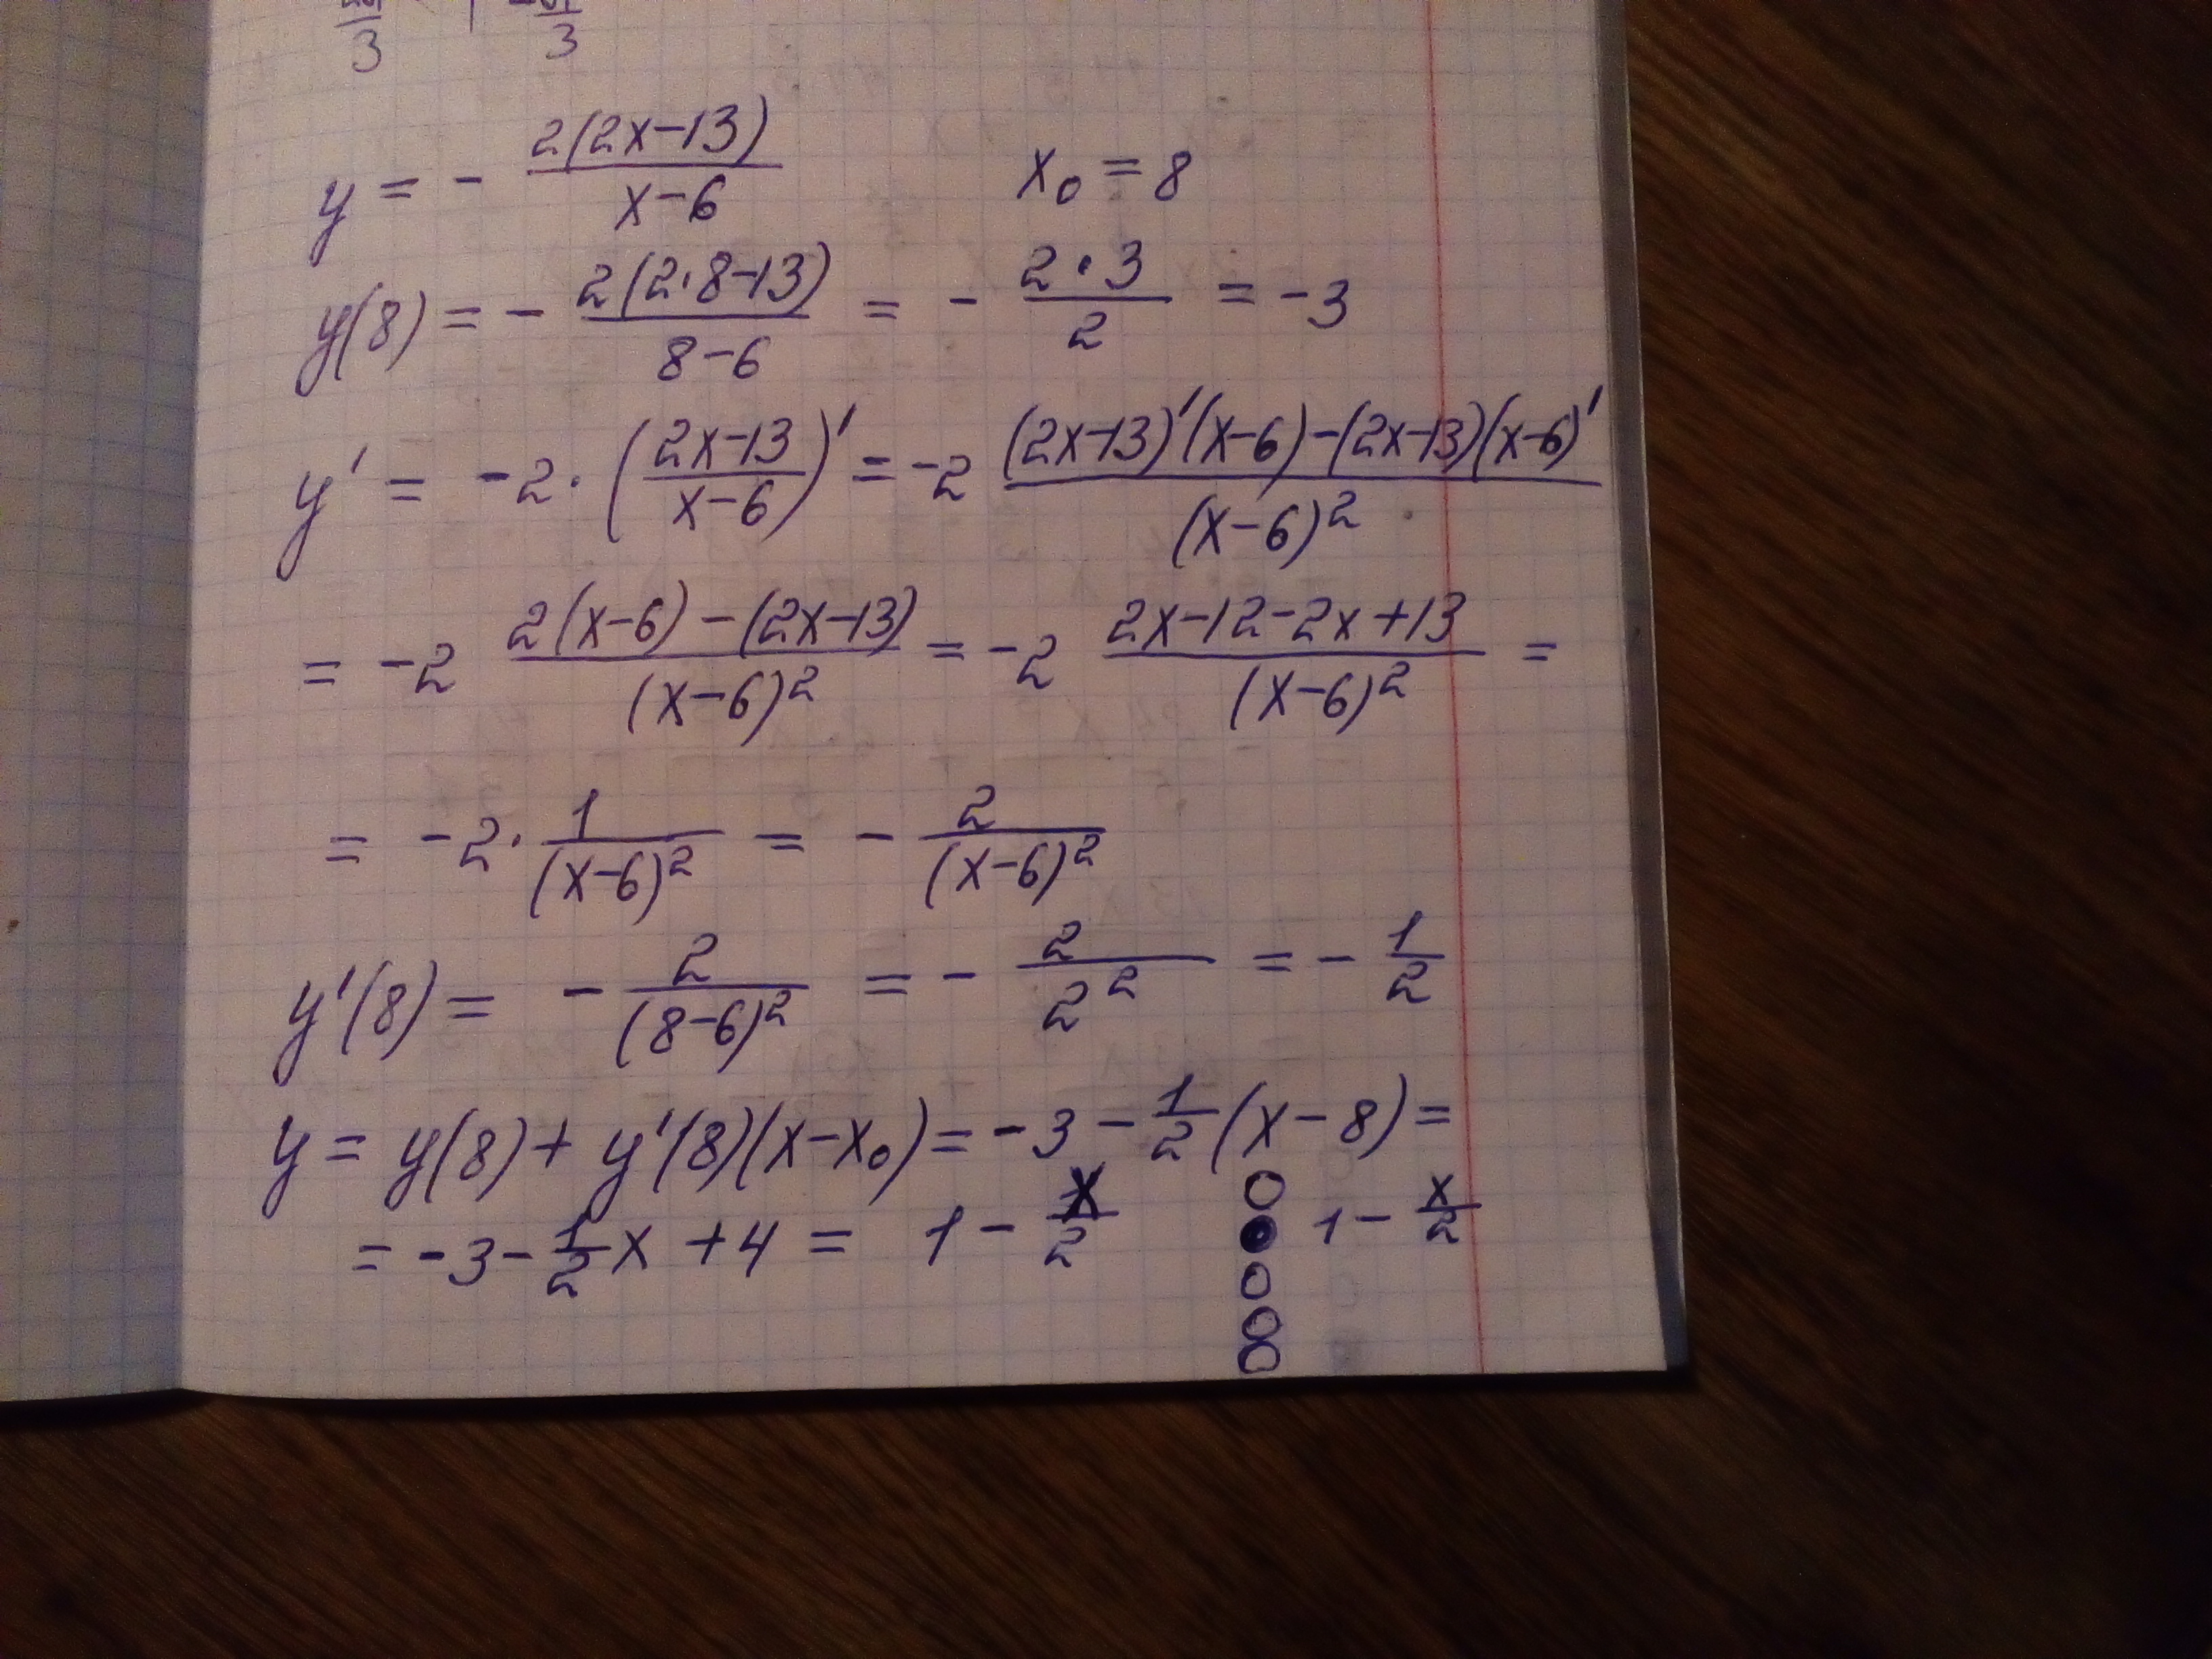 3 3
y = - 2(2x-13)/(x-6) x₀ = 8
y(8) = - 2(2·8-13)/(8-6) = - (2·3)/2 = -3
y' = -2·((2x-13)/(x-6))' = -2 ((2x-13)'(x-6)-(2x-13)(x-6)')/(x-6)²
= -2 (2(x-6)-(2x-13))/(x-6)² = -2 (2x-12-2x+13)/(x-6)² =
= -2· 1/(x-6)² = - 2/(x-6)²
y'(8) = - 2/(8-6)² = - 2/2² = - 1/2
y = y(8) + y'(8)(x-x₀) = -3 - 1/2(x-8) =
= -3 - 1/2 x + 4 = 1 - x/2 1 - x/2